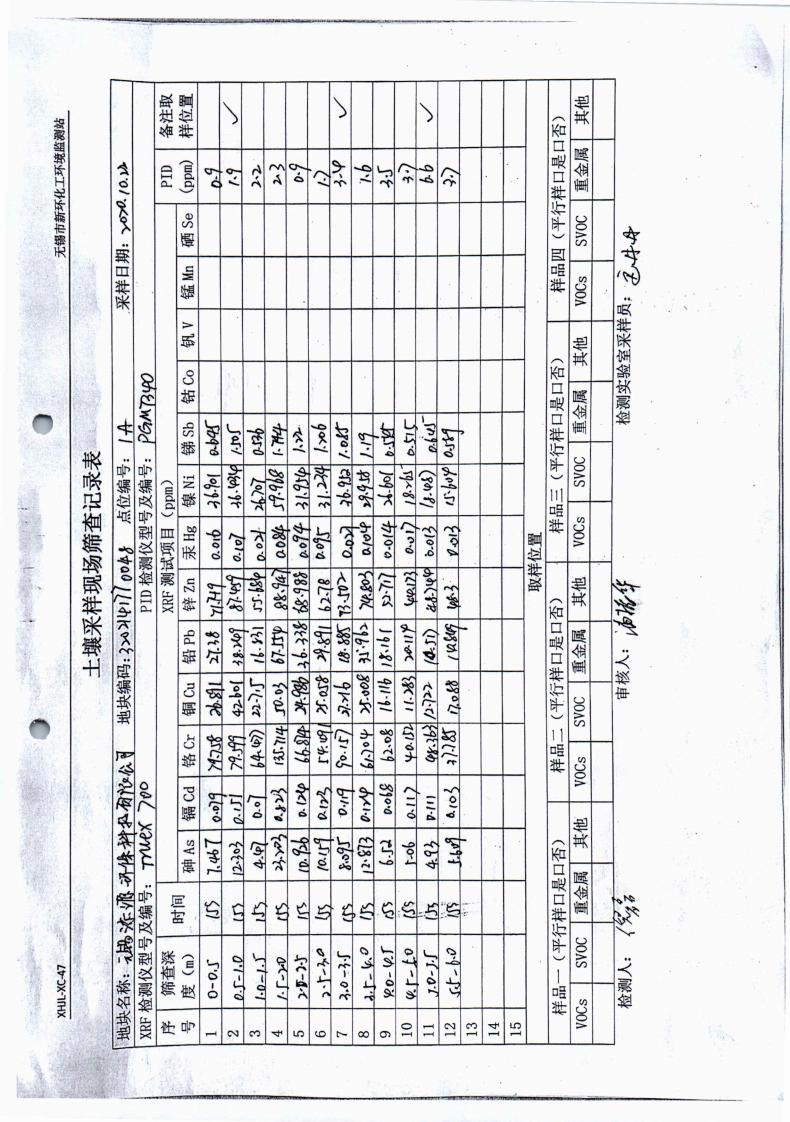 XHJL-XC-47 无锡市新环化工环境监测站
土壤采样现场筛查记录表
地块名称: 环保科技有限公司 地块编码:3202141710048 点位编号: 1A 采样日期: 2020.10.22
XRF 检测仪型号及编号: Truex 700 PID 检测仪型号及编号: PGM7340
序号 筛查深度(m) 时间 XRF 测试项目(ppm) PID (ppm) 备注取样位置
砷 As 镉 Cd 铬 Cr 铜 Cu 铅 Pb 锌 Zn 汞 Hg 镍 Ni 锑 Sb 钴 Co 钒 V 锰 Mn 硒 Se
1 0-0.5 15s 7.467 0.079 79.758 26.891 27.38 71.749 0.016 36.901 0.645 0.9
2 0.5-1.0 15s 12.303 0.151 79.599 42.601 38.249 87.459 0.107 36.434 1.505 1.9 ✓
3 1.0-1.5 15s 4.47 0.07 64.47 22.715 16.831 55.684 0.021 26.707 0.536 2.2
4 1.5-2.0 15s 23.203 0.823 135.714 50.03 67.154 88.947 0.084 59.968 1.744 2.3
5 2.0-2.5 15s 10.926 0.124 66.814 24.986 36.338 68.988 0.094 31.954 1.22 0.9
6 2.5-3.0 15s 10.159 0.123 54.091 25.058 29.891 62.78 0.095 31.234 1.206 1.7
7 3.0-3.5 15s 8.095 0.119 90.157 27.216 18.885 73.502 0.021 36.952 1.085 3.4 ✓
8 3.5-4.0 15s 12.873 0.124 61.704 25.008 35.962 74.803 0.104 29.958 1.19 1.6
9 4.0-4.5 15s 6.52 0.068 62.08 16.116 18.161 52.717 0.014 26.601 0.545 3.5
10 4.5-5.0 15s 5.06 0.117 40.152 11.283 20.114 40.173 0.017 18.265 0.515 3.7
11 5.0-5.5 15s 4.93 0.111 48.363 12.722 46.744 0.013 0.645 6.6 ✓
12 5.5-6.0 15s 5.609 0.103 37.785 17.088 14.809 46.3 0.013 15.604 0.589 3.7
13
14
15
取样位置
样品一(平行样口是口否) 样品二(平行样口是口否) 样品三(平行样口是口否) 样品四(平行样口是口否)
VOCs SVOC 重金属 其他 VOCs SVOC 重金属 其他 VOCs SVOC 重金属 其他 VOCs SVOC 重金属 其他
检测人: 审核人: 检测实验室采样员: